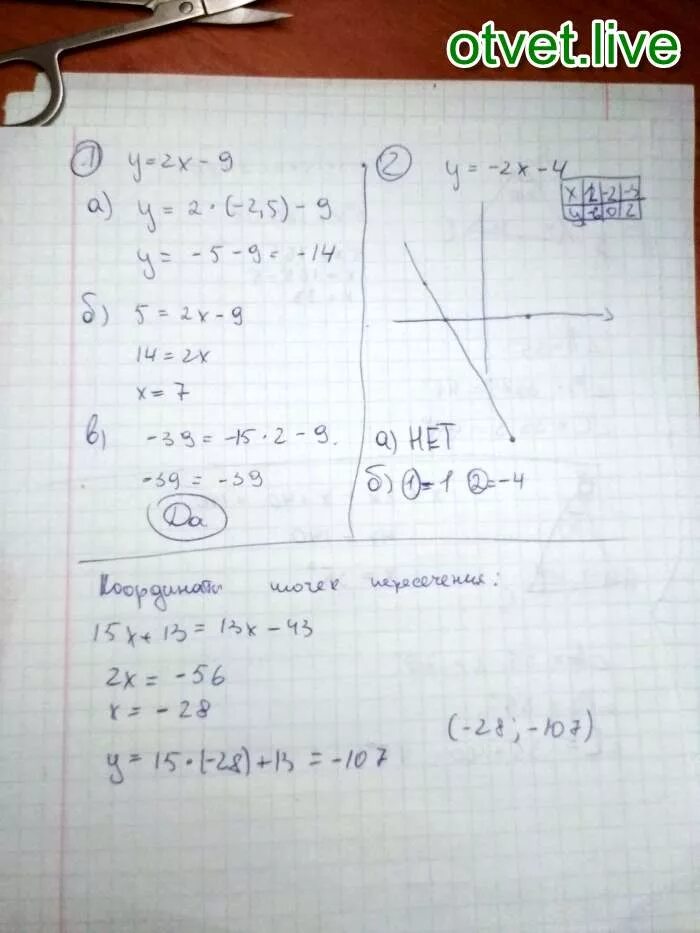 otvet.live
① y=2x-9
а) y = 2·(-2,5)-9
y = -5-9= -14
б) 5 = 2x-9
14=2x
x=7
в) -39=-15·2-9.
-39 = -39
Да
② y = -2x-4
x -2 -3
y 0 2
а) НЕТ
б) ①=1 ②=-4
Координаты точек пересечения:
15x+13=13x-43
2x = -56
x = -28
y = 15·(-28)+13 = -107
(-28; -107)